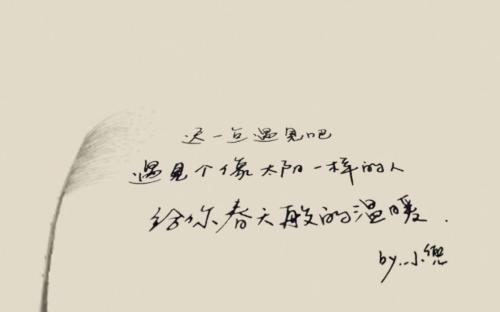 遇见吧
遇见个像太阳一样的人
给你春天般的温暖.
by.小兜